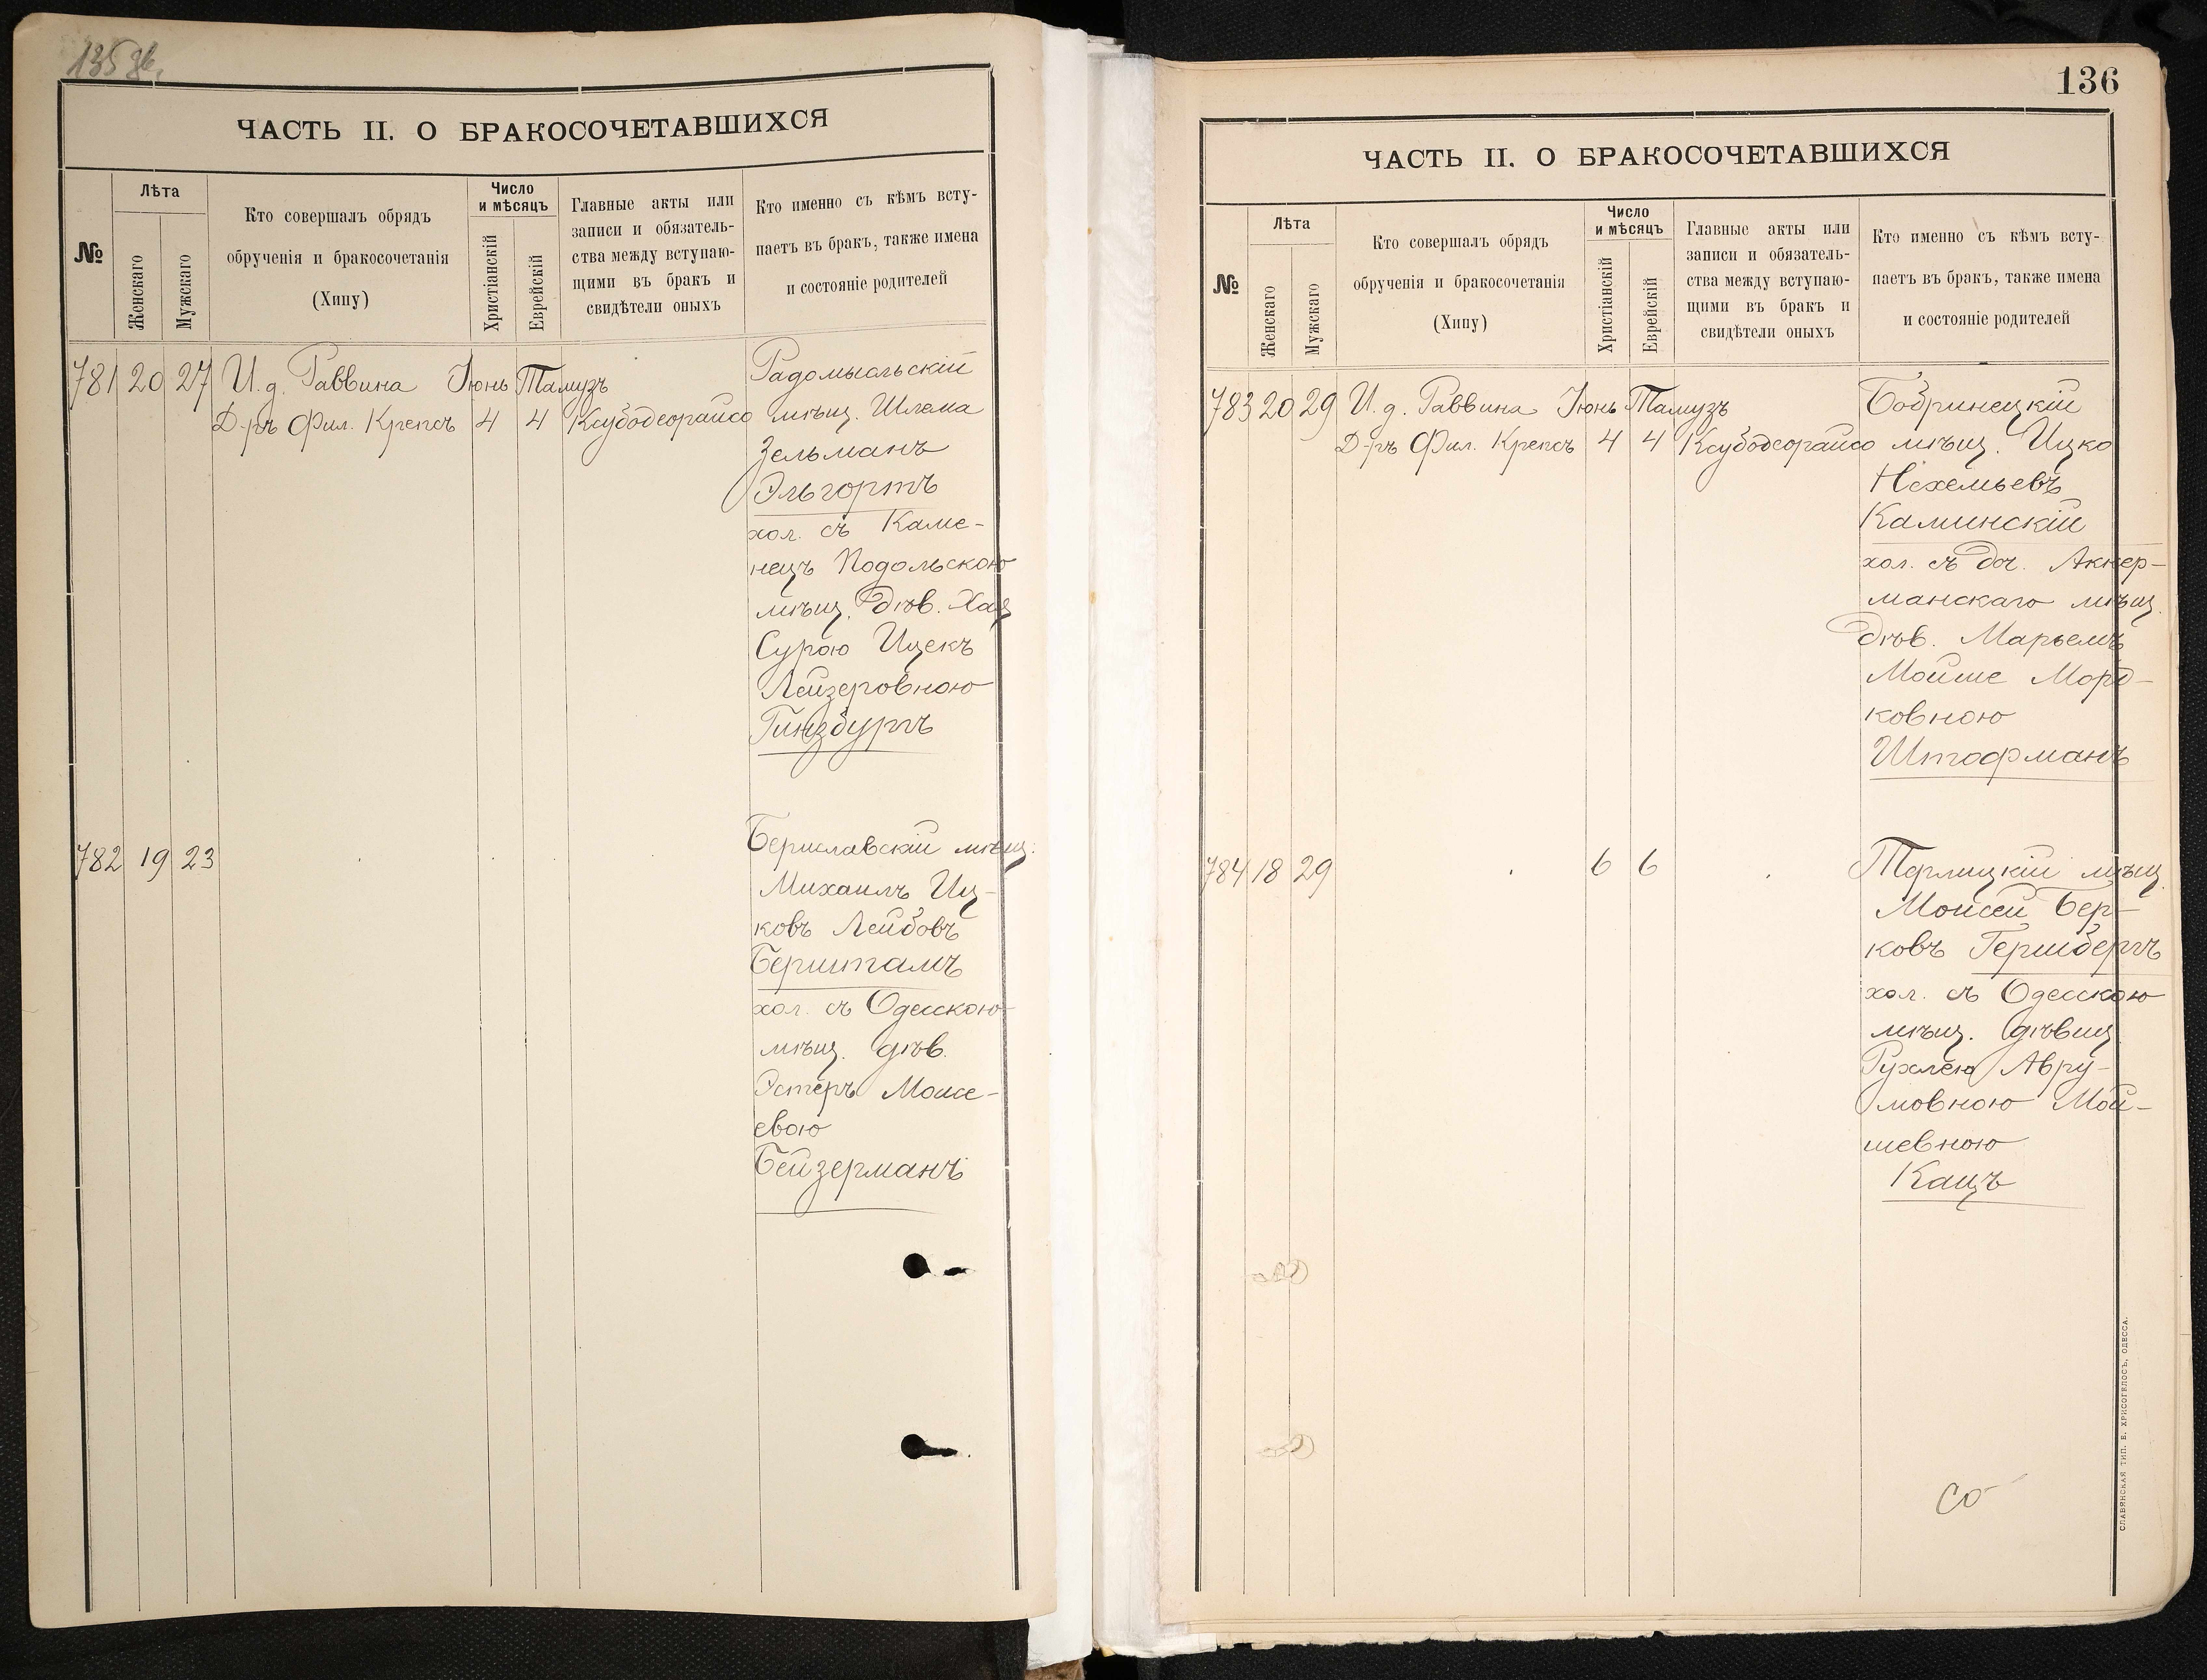 135 зв.
ЧАСТЬ II. О БРАКОСОЧЕТАВШИХСЯ
№
Лѣта
Женскаго
Мужскаго
Кто совершалъ обрядъ
обрученія и бракосочетанія
(Хипу)
Число
и мѣсяцъ
Христіанскій
Еврейскій
Главные акты или
записи и обязатель-
ства между вступаю-
щими въ бракъ и
свидѣтели оныхъ
Кто именно съ кѣмъ всту-
паетъ въ бракъ, также имена
и состояніе родителей
781 20 27 И. д. Раввина Іюнь Тамузъ
Д-ръ Фил. Крепсъ 4 4 Ксубодеорайсо
Радомысльскій
мѣщ. Шлема
Зельманъ
Эльгортъ
хол. съ Каме-
нецъ Подольскою
мѣщ. дѣв. Хая
Сурою Ицекъ
Лейзеровною
Гинзбургъ
782 19 23
Бериславскій мѣщ.
Михаилъ Иц-
ковъ Лейбовъ
Берштамъ
хол. съ Одесскою
мѣщ. дѣв.
Эстеръ Моше-
евою
Бейзерманъ
136
ЧАСТЬ II. О БРАКОСОЧЕТАВШИХСЯ
№
Лѣта
Женскаго
Мужскаго
Кто совершалъ обрядъ
обрученія и бракосочетанія
(Хипу)
Число
и мѣсяцъ
Христіанскій
Еврейскій
Главные акты или
записи и обязатель-
ства между вступаю-
щими въ бракъ и
свидѣтели оныхъ
Кто именно съ кѣмъ всту-
паетъ въ бракъ, также имена
и состояніе родителей
783 20 29 И. д. Раввина Іюнь Тамузъ
Д-ръ Фил. Крепсъ 4 4 Ксубодеорайсо
Бобринецкій
мѣщ. Ицко
Нехемьевъ
Каминскій
хол. съ доч. Аккер-
манскаго мѣщ.
дѣв. Марьемъ
Мойше Морд-
ковною
Штофманъ
784 18 29 6 6
Терлицкій мѣщ.
Моисей Бер-
ковъ Гершбергъ
хол. съ Одесскою
мѣщ. дѣвиц.
Рухлею Авру-
мовною Мой-
шевною
Кацъ
СЛАВЯНСКАЯ ТИП. Е. ХРИСОГЕЛОСЪ, ОДЕССА.